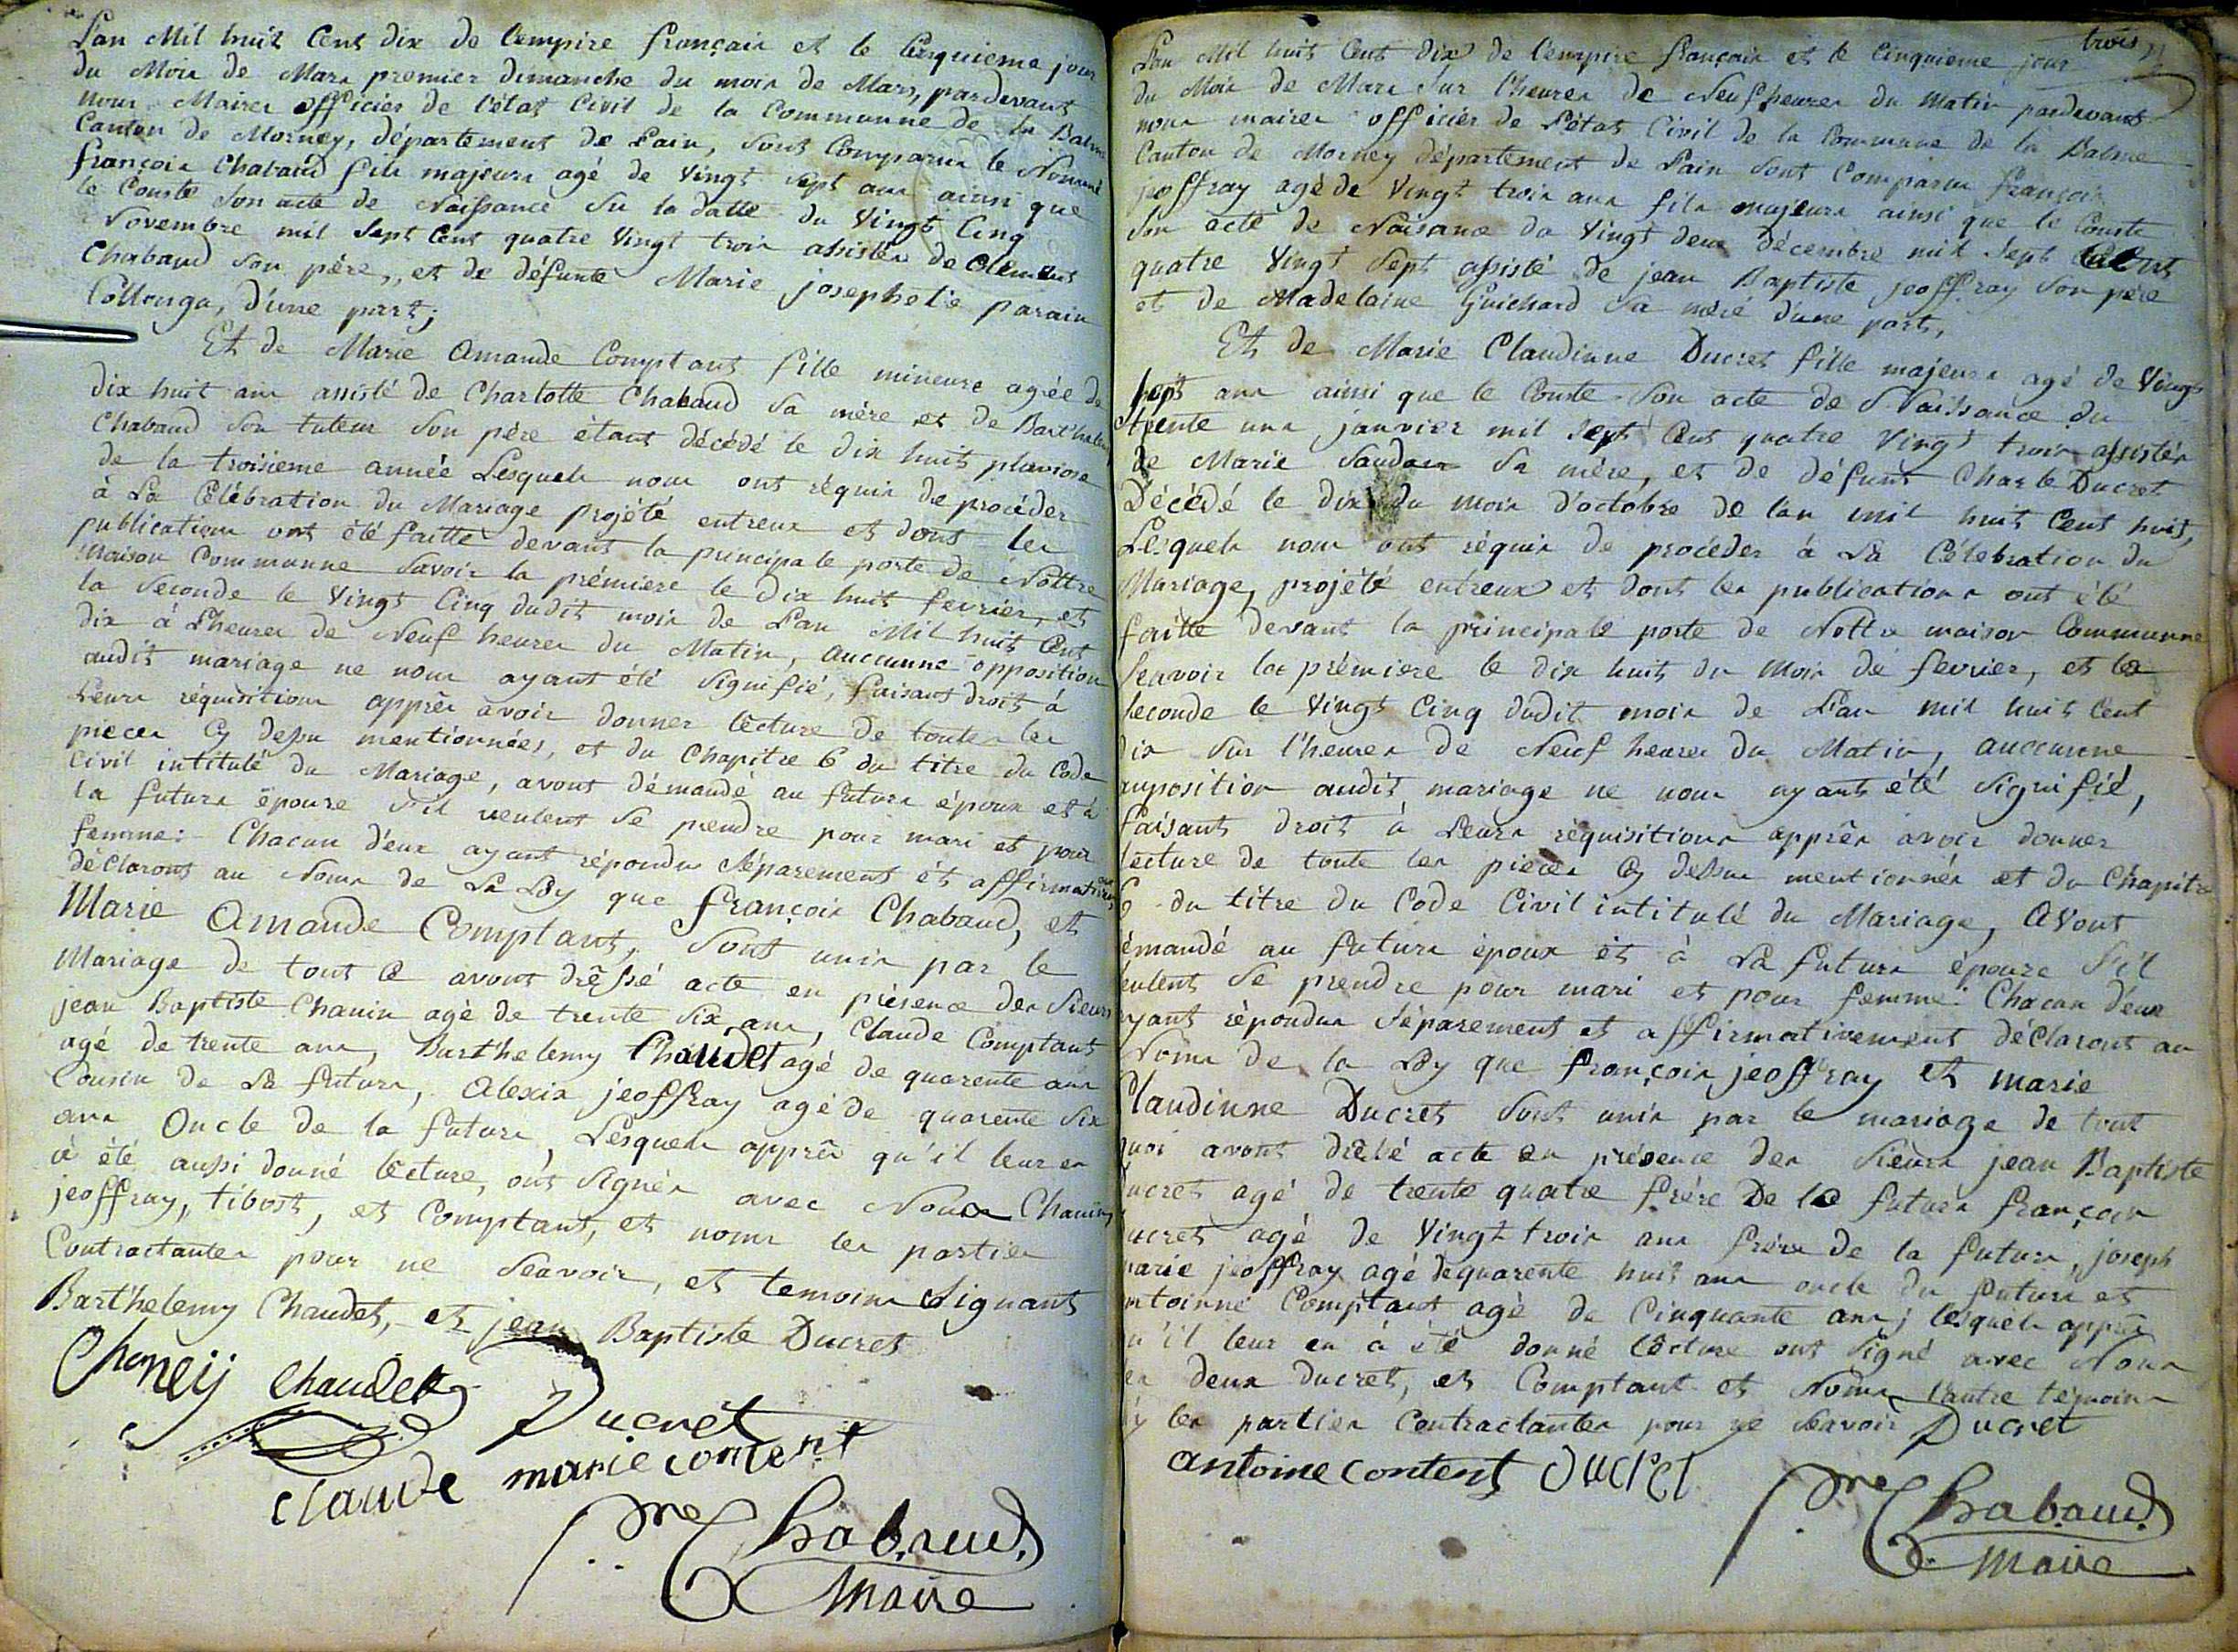 L'an Mil huit Cent dix de l'empire françair et le Cinquieme jour
du Moir de Marr premier dimanche du moir de Mars, pardevant
nour Mairer officier de l'état Civil de la Communne de la Balme
Canton de Mornay, département de Lain, sont Comparur le Nommé
françoir Chabaud fils majeurr agé de Vingt sept anr ainsi que
le Conste Son acte de Naissance Su la datte du Vingt Cinq
Novembre mil Sept Cent quatre Vingt troir assistér de Clément
Chabaud son père, et de défunte Marie josephete parain
Collonga, d'une part;
Et de Marie Amande Comptant fille mineure agée de
dix huit anr assisté de Charlotte Chabaud Sa mère et de Barthelemy
Chabaud Son tuteur Son père étant décédé le dix huit pluviose
de la troisieme année Lesquels nour ont réquir de procéder
à La Célébration du Mariage projété entreux et dont ler
publicationr ont été faitte devant la principale porte de Nottre
Maison Communne Savoir la prémiere le dix huit fevrier, et
la Seconde le Vingt Cinq dudit moir de L'an Mil huit Cent
dix à L'heurer de Neuf heurer du Matin, auccunne opposition
audit mariage ne nour ayant été Signifié, faisant droit à
Leurr réquisitionr apprêr avoir donner lècture de touter ler
piecer Cy dessu mentionnées, et du Chapitre 6 du titre du Code
Civil intitulé du Mariage, avont démandé au futurr époux et à
la futurr épouze S'il veulent Se prendre pour mari et pour
femme: Chacun d'eux ayant répondur Séparement et affirmativement
déclaront au Nomr de La Loy que françoir Chabaud, et
Marie Amande Comptant, Sont unir par le
Mariage de tout Ce avont drêssé acte en présence der Sieurr
jean Baptiste Chanin agé de trente Six anr, Claude Comptant
agé de trente anr, Barthelemy Chaudet agé de quarente anr
Cousin de La futurr, Alexir jeoffray agé de quarente Six
anr Oncle de la futurr, Lesquelr apprêr qu'il leur en
à été aussi donné lècture, ont Signér avec Nour Chanin,
jeoffray, tibost, et Comptant, et nomr ler partier
Contractanter pour ne Scavoir, et temoinr Signant
Barthelemy Chaudet, et jean Baptiste Ducret
Choneij Chaudet
Ducret
claude marie content
Pre Chabaud
Maire
trois
L'an Mil huit Cent dix de l'empire françair et le Cinquieme jour
du Moir de Marr Sur l'heurer de Neuf heurer du Matin pardevant
nour mairer officier de L'état Civil de la Commune de la Balme
Canton de Mornay département de Lain Sont Comparur françoir
jeoffray agé de Vingt troir anr filr majeurr ainsi que le Conste
Son acte de Naisance du Vingt deux décembre mil Sept Cent
quatre Vingt Sept assisté de jean Baptiste jeoffray Son père
et de Madelaine Guichard Sa mère d'une part,
Et de Marie Claudinne Ducret fille majeurr agé de Vingt
Sept anr ainsi que le Conste Son acte de Naissance du
trente unr janvier mil Sept Cent quatre Vingt troir assistér
de Marie Sa mère, et de défunt Charle Ducret
Décédé le dix du moir d'octobre de l'an mil huit Cent huit,
Lesquelr nour ont réquir de procéder à La Célebration du
Mariage, projété entreux et dont ler publicationr ont été
faitte devant la principale porte de Nottre maison Communne
Scavoir la prémiere le dix huit du Moir de fevrier, et la
Seconde le Vingt Cinq dudit moir de L'an mil huit Cent
dix Sur l'heurer de Neuf heurer du Matin, auccunne
oupposition audit mariage ne nour ayant été Signifié,
faisant droit à Leurr réquisitionr apprêr avoir donner
lecture de toute ler piecer Cy dessur mentionnér et du Chapitre
6 du titre du Code Civil intitulé du Mariage, Avont
démandé au futurr époux et à La futurr épouze S'il
veulent Se prendre pour mari et pour femme: Chacun d'eux
ayant répondur Séparement et affirmativement déclaront au
Nomr de la Loy que françoir jeoffray et marie
Claudinne Ducret Sont unir par le mariage de tout
quoi avont dréssé acte en présence der Sieurr jean Baptiste
Ducret agé de trente quatre frère De la futurr françoir
Ducret agé de Vingt troir anr frère de la futurr, joseph
marie jeoffray agé de quarente huit anr oncle du futurr et
Antoinne Comptant agé de Cinquante anr; lesquelr apprêr
qu'il leur en à été donné lècture ont Signé avec Nour
ler deux ducret, et Comptant et Nomr l'autre témoinr
ny ler partier Contractanter pour ne Scavoir Ducret
antoine content Ducret
Pre Chabaud
Maire